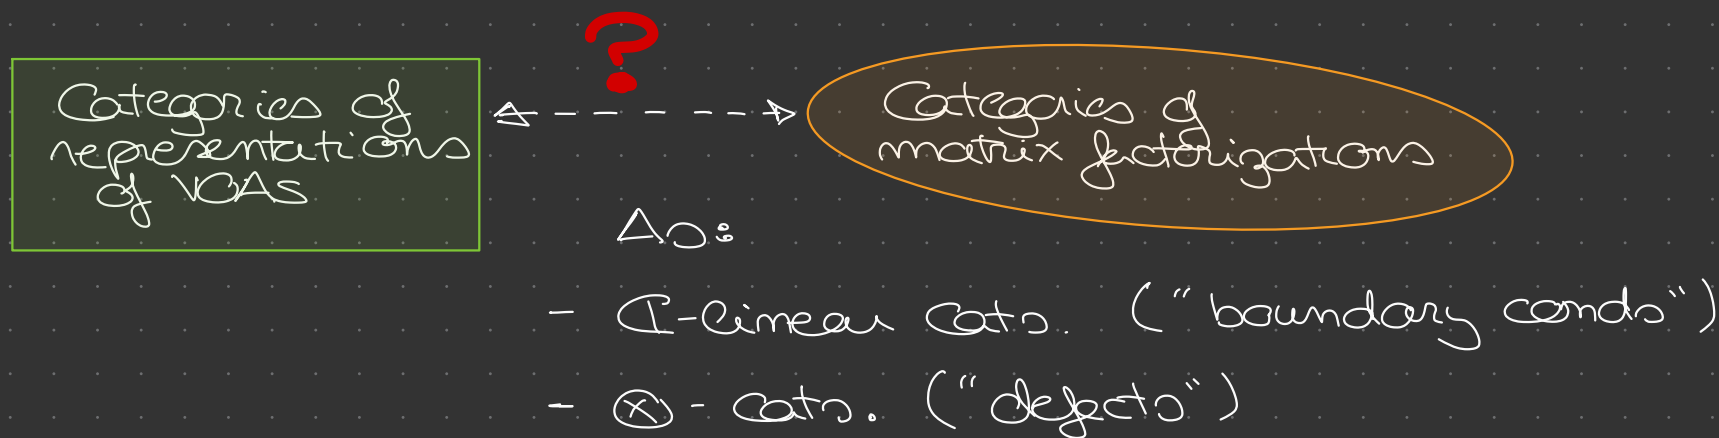 ?
Categories of
representations
of VOAs
Categories of
matrix factorizations
As:
- ℂ-linear cats. ("boundary conds")
- ⊗-cats. ("defects")